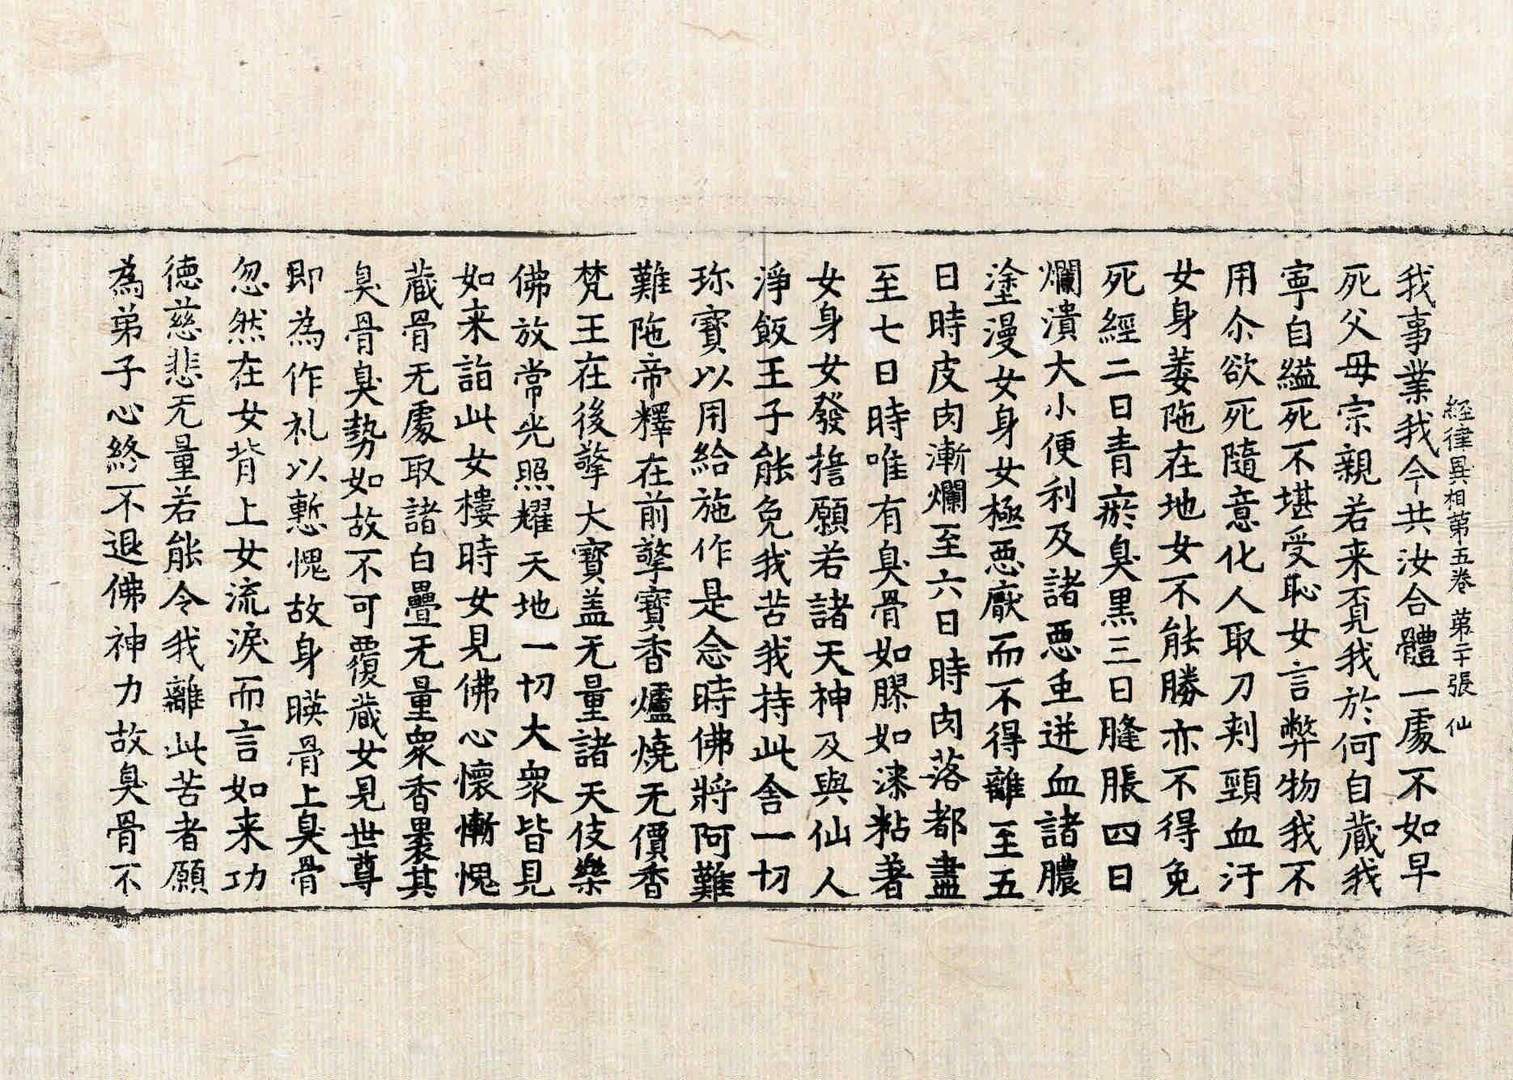 我事業我今共汝合體一處不如早
經律異相第五卷 第二十張 仙
死父母宗親若来覔我於何自藏我
寧自縊死不堪受恥女言弊物我不
用尒欲死隨意化人取刀刾頸血汙
女身萎陁在地女不能勝亦不得免
死經二日青瘀臭黑三日膖脹四日
爛潰大小便利及諸惡虫迸血諸膿
塗漫女身女極惡厭而不得離至五
日時皮肉漸爛至六日時肉落都盡
至七日時唯有臭骨如膠如漆粘著
女身女發誓願若諸天神及與仙人
淨飯王子能免我苦我持此舍一切
珎寶以用給施作是念時佛將阿難
難陁帝釋在前擎寶香爐燒无價香
梵王在後擎大寶盖无量諸天伎樂
佛放常光照耀天地一切大衆皆見
如来詣此女樓時女見佛心懷慚愧
藏骨无處取諸白疊无量衆香褁其
臭骨臭勢如故不可覆藏女見世尊
即為作礼以慙愧故身暎骨上臭骨
忽然在女背上女流淚而言如来功
德慈悲无量若能令我離此苦者願
為弟子心終不退佛神力故臭骨不